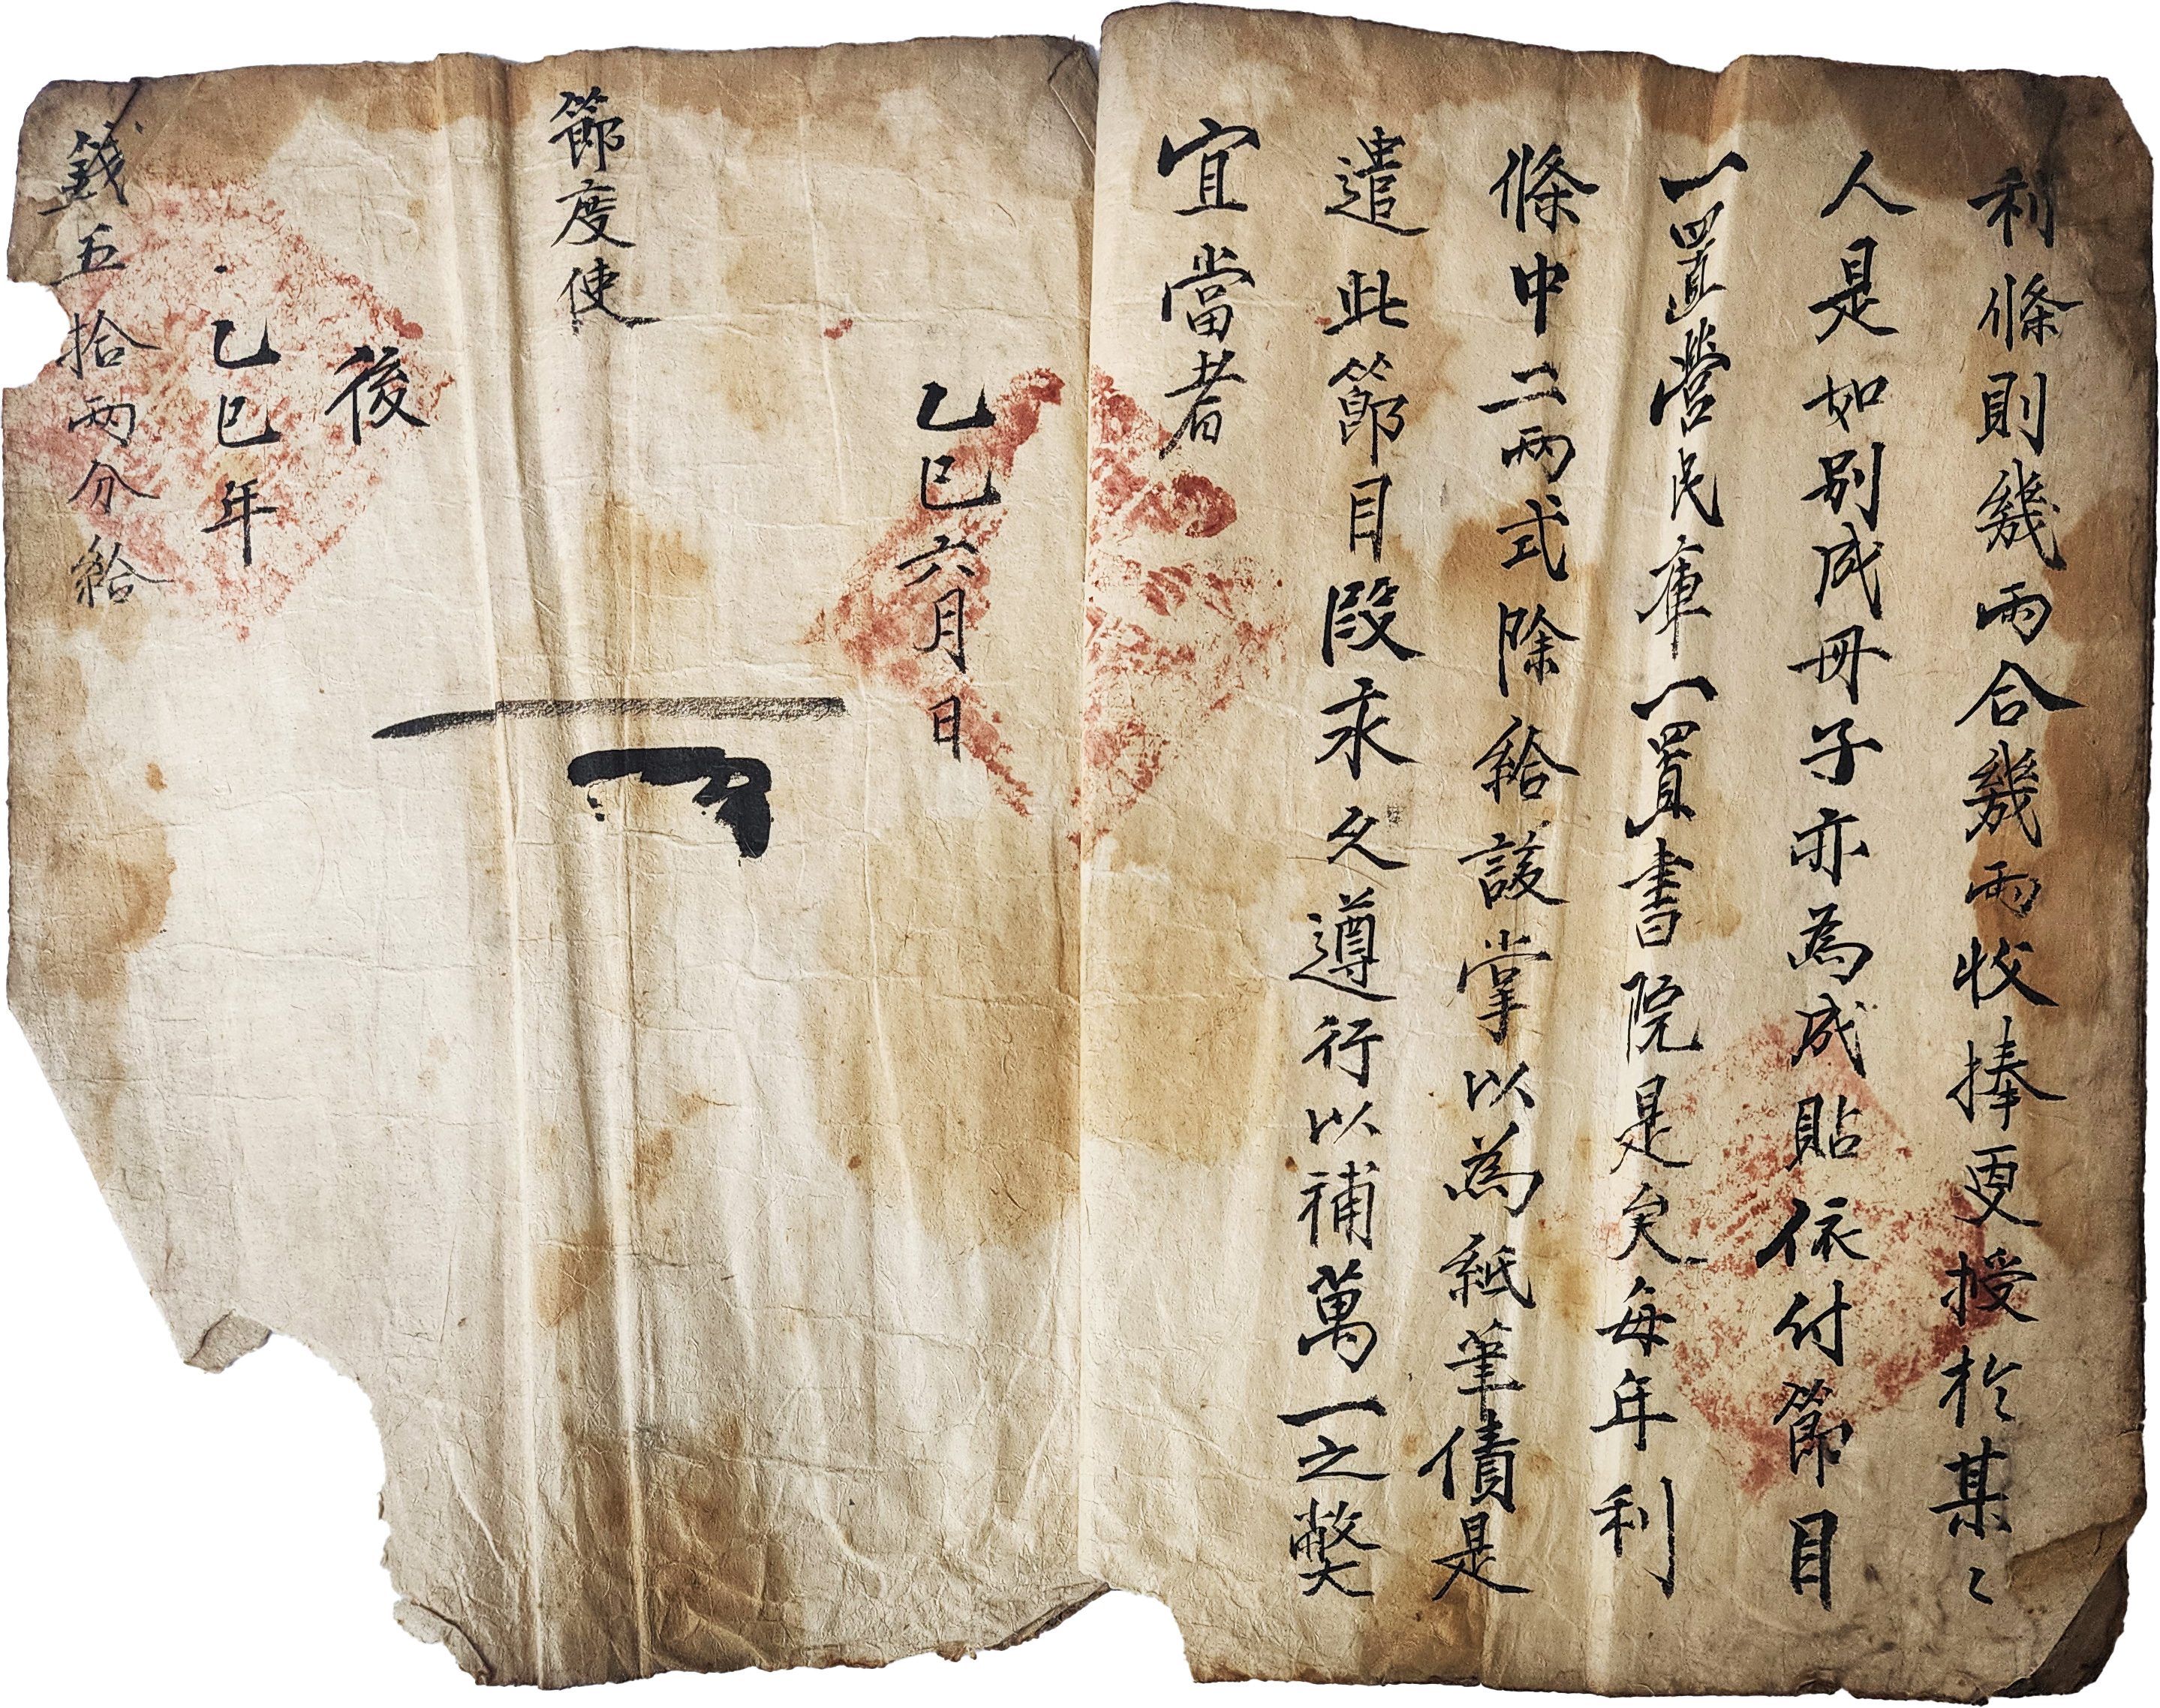 利條則幾兩合幾兩收捧更授於某〻
人是如別成毋子亦為成貼依付節目
一置營民庫一置書院是矣每年利
條中二兩式除給該掌以為紙筆債是
遣此節目段永久遵行以補萬一之弊
宜當者
乙巳六月日
節度使
後
乙巳年
錢五拾兩分給